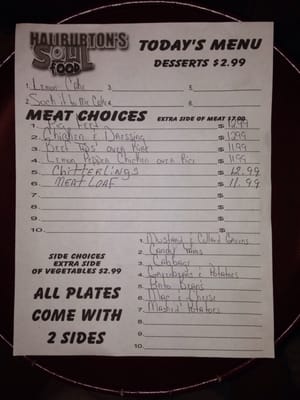 HALIBURTON'S
SOUL
FOOD
TODAY'S MENU
DESSERTS $2.99
1. Lemon Cake 3. 5.
2. Sock it to Me Cake 4. 6.
MEAT CHOICES EXTRA SIDE OF MEAT $7.00
1. Pig Feet $ 12.99
2. Chicken & Dressing $ 12.99
3. Beef Tips over Rice $ 11.99
4. Lemon Pepper Chicken over Rice $ 11.99
5. CHITTERLINGS $ 12.99
6. MEATLOAF $ 11.99
7. $
8. $
9. $
10. $
SIDE CHOICES
EXTRA SIDE
OF VEGETABLES $2.99
ALL PLATES
COME WITH
2 SIDES
1. Mustard & Collard Greens
2. Candy Yams
3. Cabbage
4. & Potatoes
5. Pinto Beans
6. Mac & Cheese
7. Mashed Potatoes
8.
9.
10.